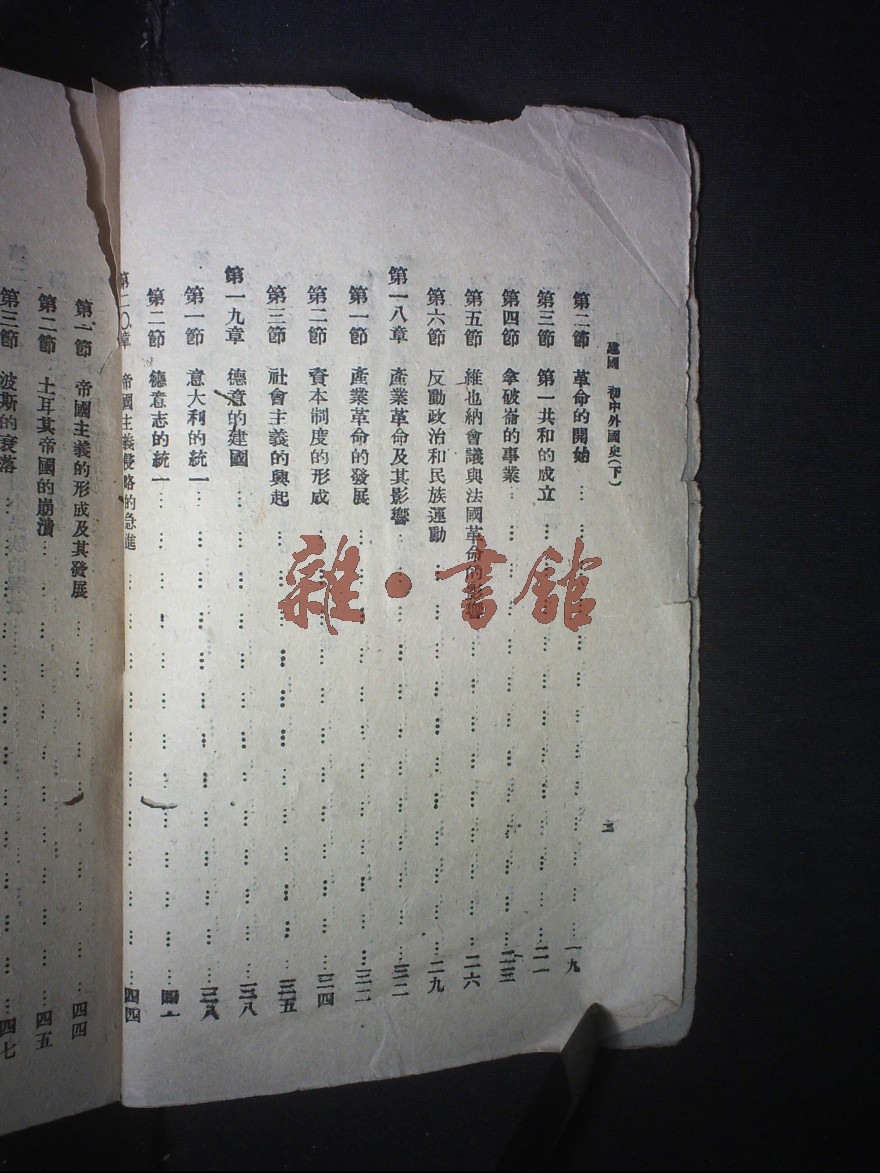 建國　初中外國史(下)　二
第二節　革命的開始……一九
第三節　第一共和的成立……二一
第四節　拿破崙的事業……二三
第五節　維也納會議與法國革命的影響……二六
第六節　反動政治和民族運動……二九
第一八章　產業革命及其影響……三二
第一節　產業革命的發展……三二
第二節　資本制度的形成……三四
第三節　社會主義的興起……三五
第一九章　德意的建國……三八
第一節　意大利的統一……三八
第二節　德意志的統一……四一
第二〇章　帝國主義侵略的急進……四四
第一節　帝國主義的形成及其發展……四四
第二節　土耳其帝國的崩潰……四五
第三節　波斯的衰落……四七
雜·書館